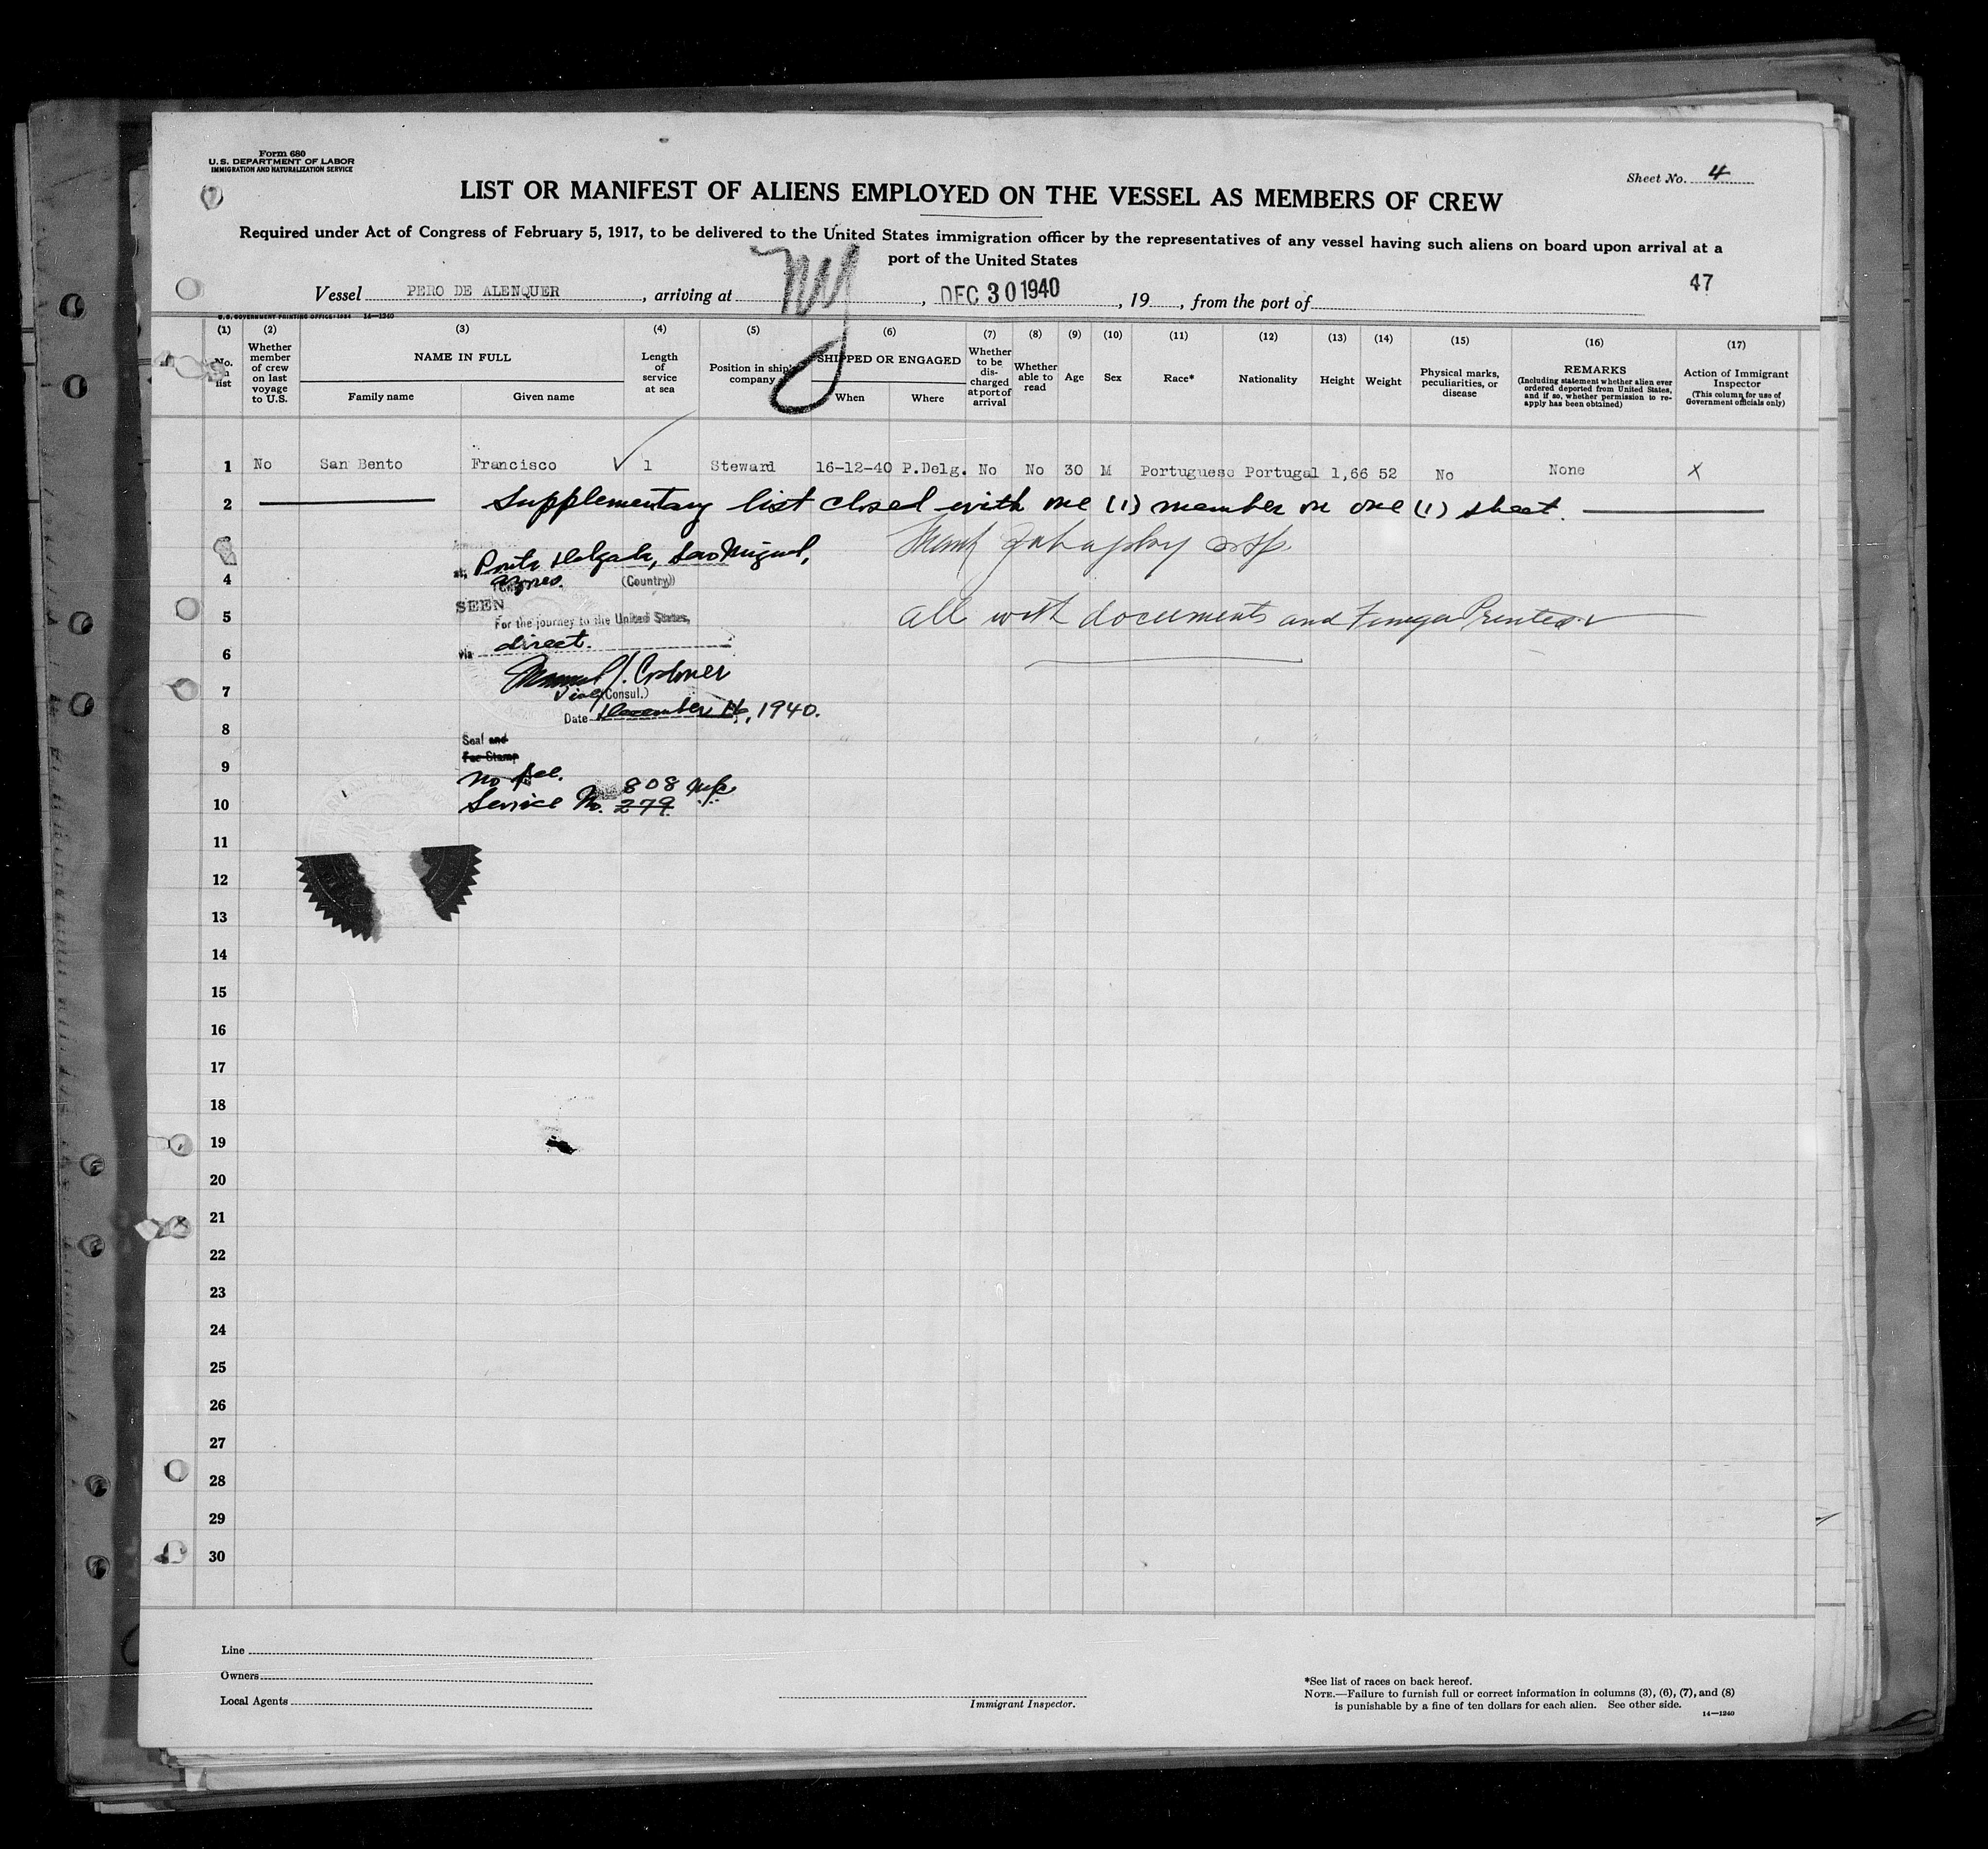 Form 680
U. S. DEPARTMENT OF LABOR
IMMIGRATION AND NATURALIZATION SERVICE
Sheet No. 4
LIST OR MANIFEST OF ALIENS EMPLOYED ON THE VESSEL AS MEMBERS OF CREW
Required under Act of Congress of February 5, 1917, to be delivered to the United States immigration officer by the representatives of any vessel having such aliens on board upon arrival at a
port of the United States
47
Vessel PERO DE ALENQUER, arriving at NY, DEC 30 1940, 19, from the port of
U. S. GOVERNMENT PRINTING OFFICE: 1934 14—1240
(1) (2) (3) (4) (5) (6) (7) (8) (9) (10) (11) (12) (13) (14) (15) (16) (17)
No. on list
Whether member of crew on last voyage to U.S.
NAME IN FULL
Family name
Given name
Length of service at sea
Position in ship's company
SHIPPED OR ENGAGED
When
Where
Whether to be discharged at port of arrival
Whether able to read
Age
Sex
Race*
Nationality
Height
Weight
Physical marks, peculiarities, or disease
REMARKS
(Including statement whether alien ever ordered deported from United States, and if so, whether permission to reapply has been obtained)
Action of Immigrant Inspector
(This column for use of Government officials only)
1 No San Bento Francisco ✓ 1 Steward 16-12-40 P.Delg. No No 30 M Portuguese Portugal 1,66 52 No None X
2 Supplementary list closed with one (1) member on one (1) sheet.
at Ponta Delgada, Sao Miguel,
4 Azores. (Country)
SEEN
5 For the journey to the United States,
all with documents and Finger Printed
6 via direct.
7 (Consul.)
Date December 16, 1940.
8 Seal and
Fee Stamp
9 No fee.
10 Service No. 279. 808
11
12
13
14
15
16
17
18
19
20
21
22
23
24
25
26
27
28
29
30
Line
Owners
Local Agents
Immigrant Inspector.
*See list of races on back hereof.
NOTE.—Failure to furnish full or correct information in columns (3), (6), (7), and (8)
is punishable by a fine of ten dollars for each alien. See other side.
14—1240